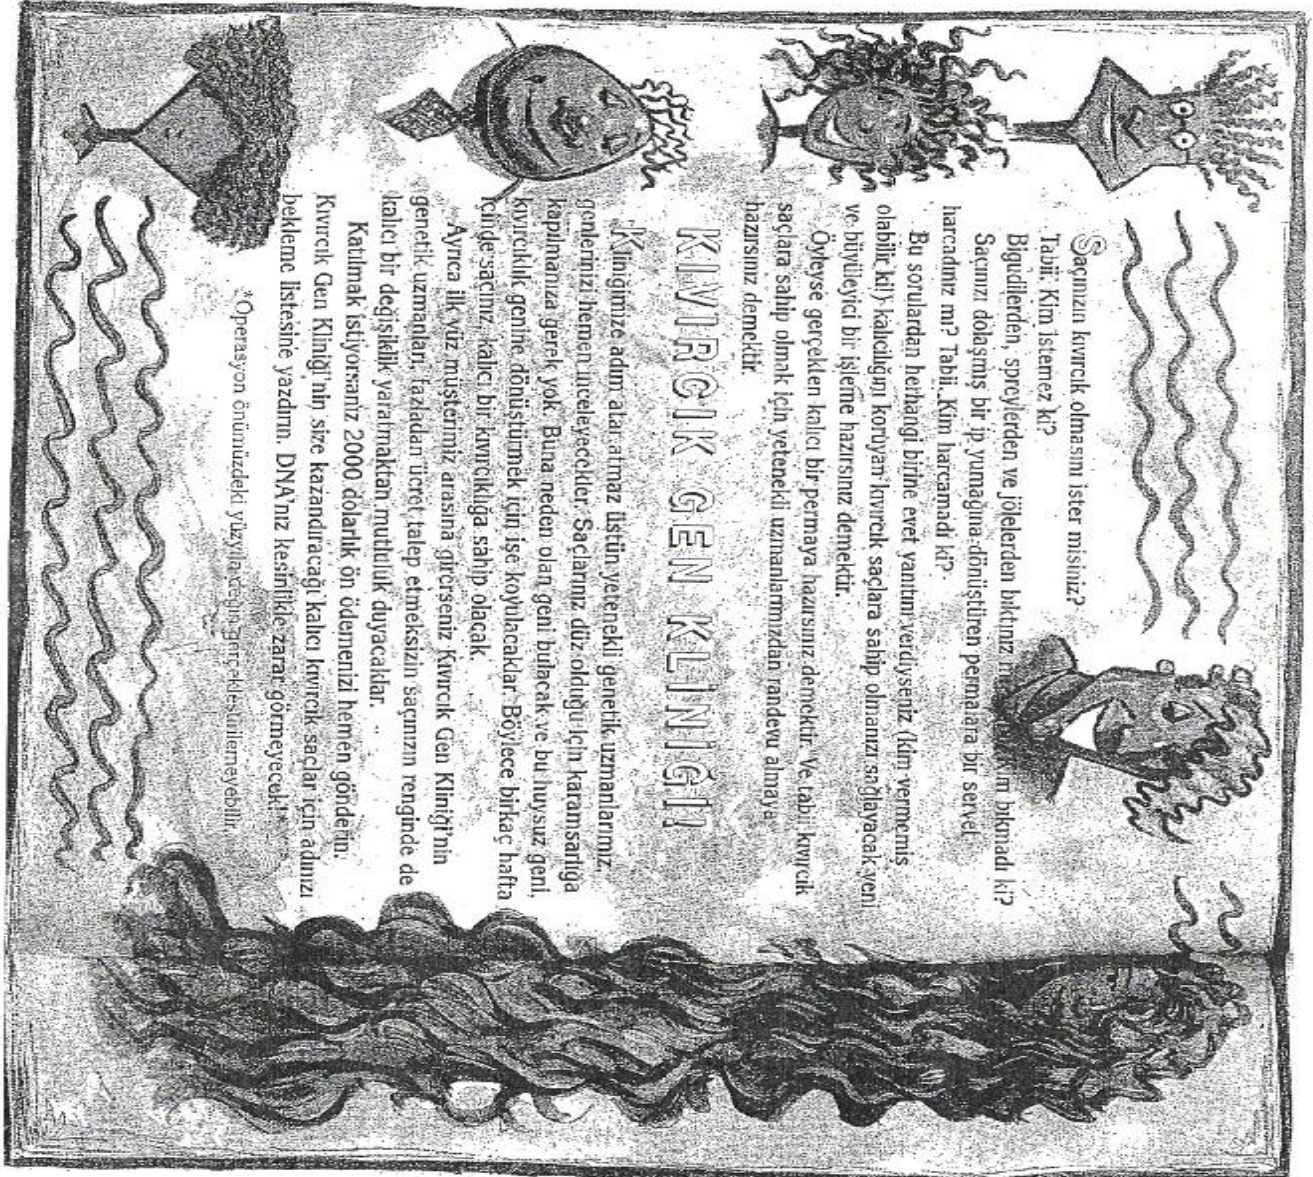 Saçınızın kıvırcık olmasını ister misiniz?
Tabii. Kim istemez ki?
Bigudilerden, spreylerden ve jölelerden bıktınız bıkmadı ki?
Saçınızı dolaşmış bir ip yumağına dönüştüren permalara bir servet
harcadınız mı? Tabii. Kim harcamadı ki?
Bu sorulardan herhangi birine evet yanıtını verdiyseniz (kim vermemiş
olabilir ki!) kalıcılığını koruyan kıvırcık saçlara sahip olmanızı sağlayacak yeni
ve büyüleyici bir işleme hazırsınız demektir.
Öyleyse gerçekten kalıcı bir permaya hazırsınız demektir. Ve tabii kıvırcık
saçlara sahip olmak için yetenekli uzmanlarımızdan randevu almaya
hazırsınız demektir.
KIVIRCIK GEN KLİNİĞİ!
Kliniğimize adım atar atmaz üstün yetenekli genetik uzmanlarımız,
genlerinizi hemen inceleyecekler. Saçlarınız düz olduğu için karamsarlığa
kapılmanıza gerek yok. Buna neden olan geni bulacak ve bu huysuz geni,
kıvırcıklık genine dönüştürmek için işe koyulacaklar. Böylece birkaç hafta
içinde saçınız, kalıcı bir kıvırcıklığa sahip olacak.
Ayrıca ilk yüz müşterimiz arasına girerseniz Kıvırcık Gen Kliniği'nin
genetik uzmanları, fazladan ücret talep etmeksizin saçınızın renginde de
kalıcı bir değişiklik yaratmaktan mutluluk duyacaklar.
Katılmak istiyorsanız 2000 dolarlık ön ödemenizi hemen gönderin.
Kıvırcık Gen Kliniği'nin size kazandıracağı kalıcı kıvırcık saçlar için adınızı
bekleme listesine yazdırın. DNA'nız kesinlikle zarar görmeyecek!*
*Operasyon önümüzdeki yüzyıla değin gerçekleştirilemeyebilir.